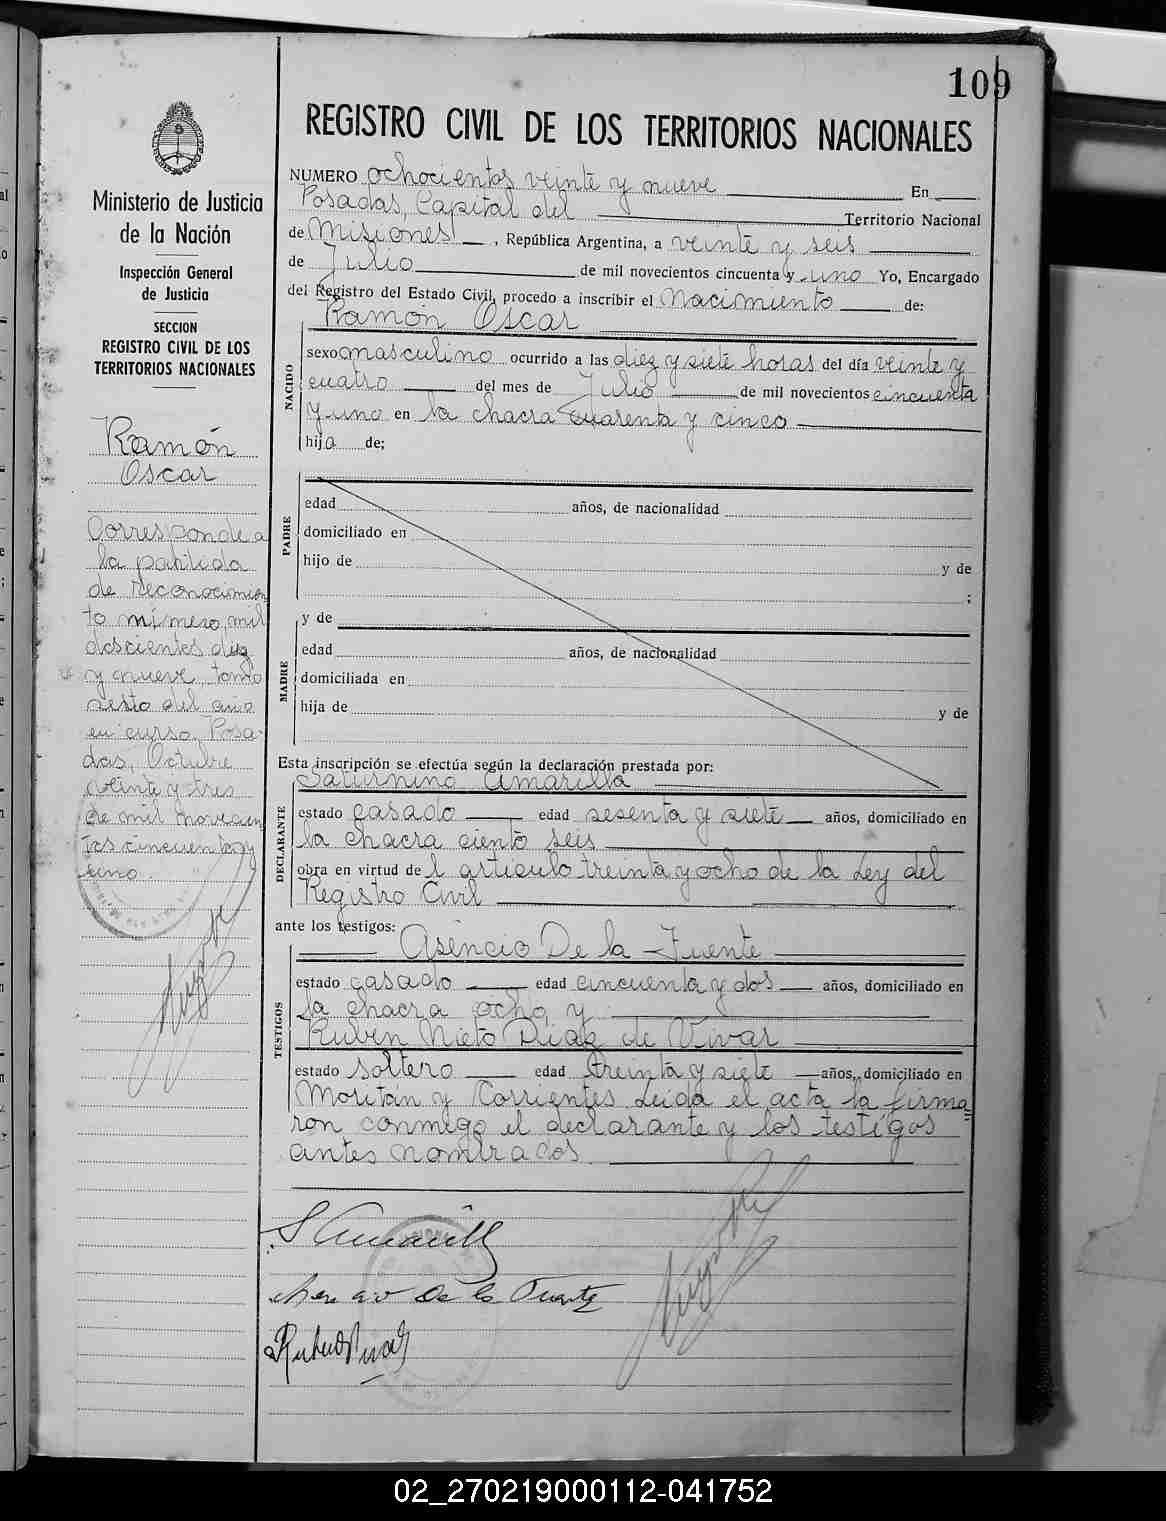 109
REGISTRO CIVIL DE LOS TERRITORIOS NACIONALES
Ministerio de Justicia
de la Nación
Inspección General
de Justicia
SECCION
REGISTRO CIVIL DE LOS
TERRITORIOS NACIONALES
Ramón
Oscar
Corresponde a
la partida
de reconocimien
to número, mil
doscientos diez
y nueve tomo
sesto del año
en curso, Posa-
das, Octubre
veinte y tres
de mil novecien
tos cincuenta y
uno.
NUMERO ochocientos veinte y nueve En
Posadas, Capital del Territorio Nacional
de Misiones, República Argentina, a veinte y seis
de Julio de mil novecientos cincuenta y uno Yo, Encargado
del Registro del Estado Civil, procedo a inscribir el Nacimiento de:
Ramón Oscar
NACIDO
sexo masculino ocurrido a las diez y siete horas del día veinte y
cuatro del mes de Julio de mil novecientos cincuenta
y uno en la chacra cuarenta y cinco
hijo de;
PADRE
edad años, de nacionalidad
domiciliado en
hijo de y de
;
MADRE
y de
edad años, de nacionalidad
domiciliada en
hija de y de
Esta inscripción se efectúa según la declaración prestada por:
Saturnino Amarilla
DECLARANTE
estado casado edad sesenta y siete años, domiciliado en
la chacra ciento seis
obra en virtud del artículo treinta y ocho de la Ley del
Registro Civil
ante los testigos:
Asencio De la Fuente
TESTIGOS
estado casado edad cincuenta y dos años, domiciliado en
la chacra ocho y
Ruben Nieto Diaz de Vivar
estado soltero edad treinta y siete años, domiciliado en
Moritán y Corrientes Leida el acta la firma=
ron conmigo el declarante y los testigos
antes nombrados.
S Amarilla
Asencio De la Fuente
02_270219000112-041752